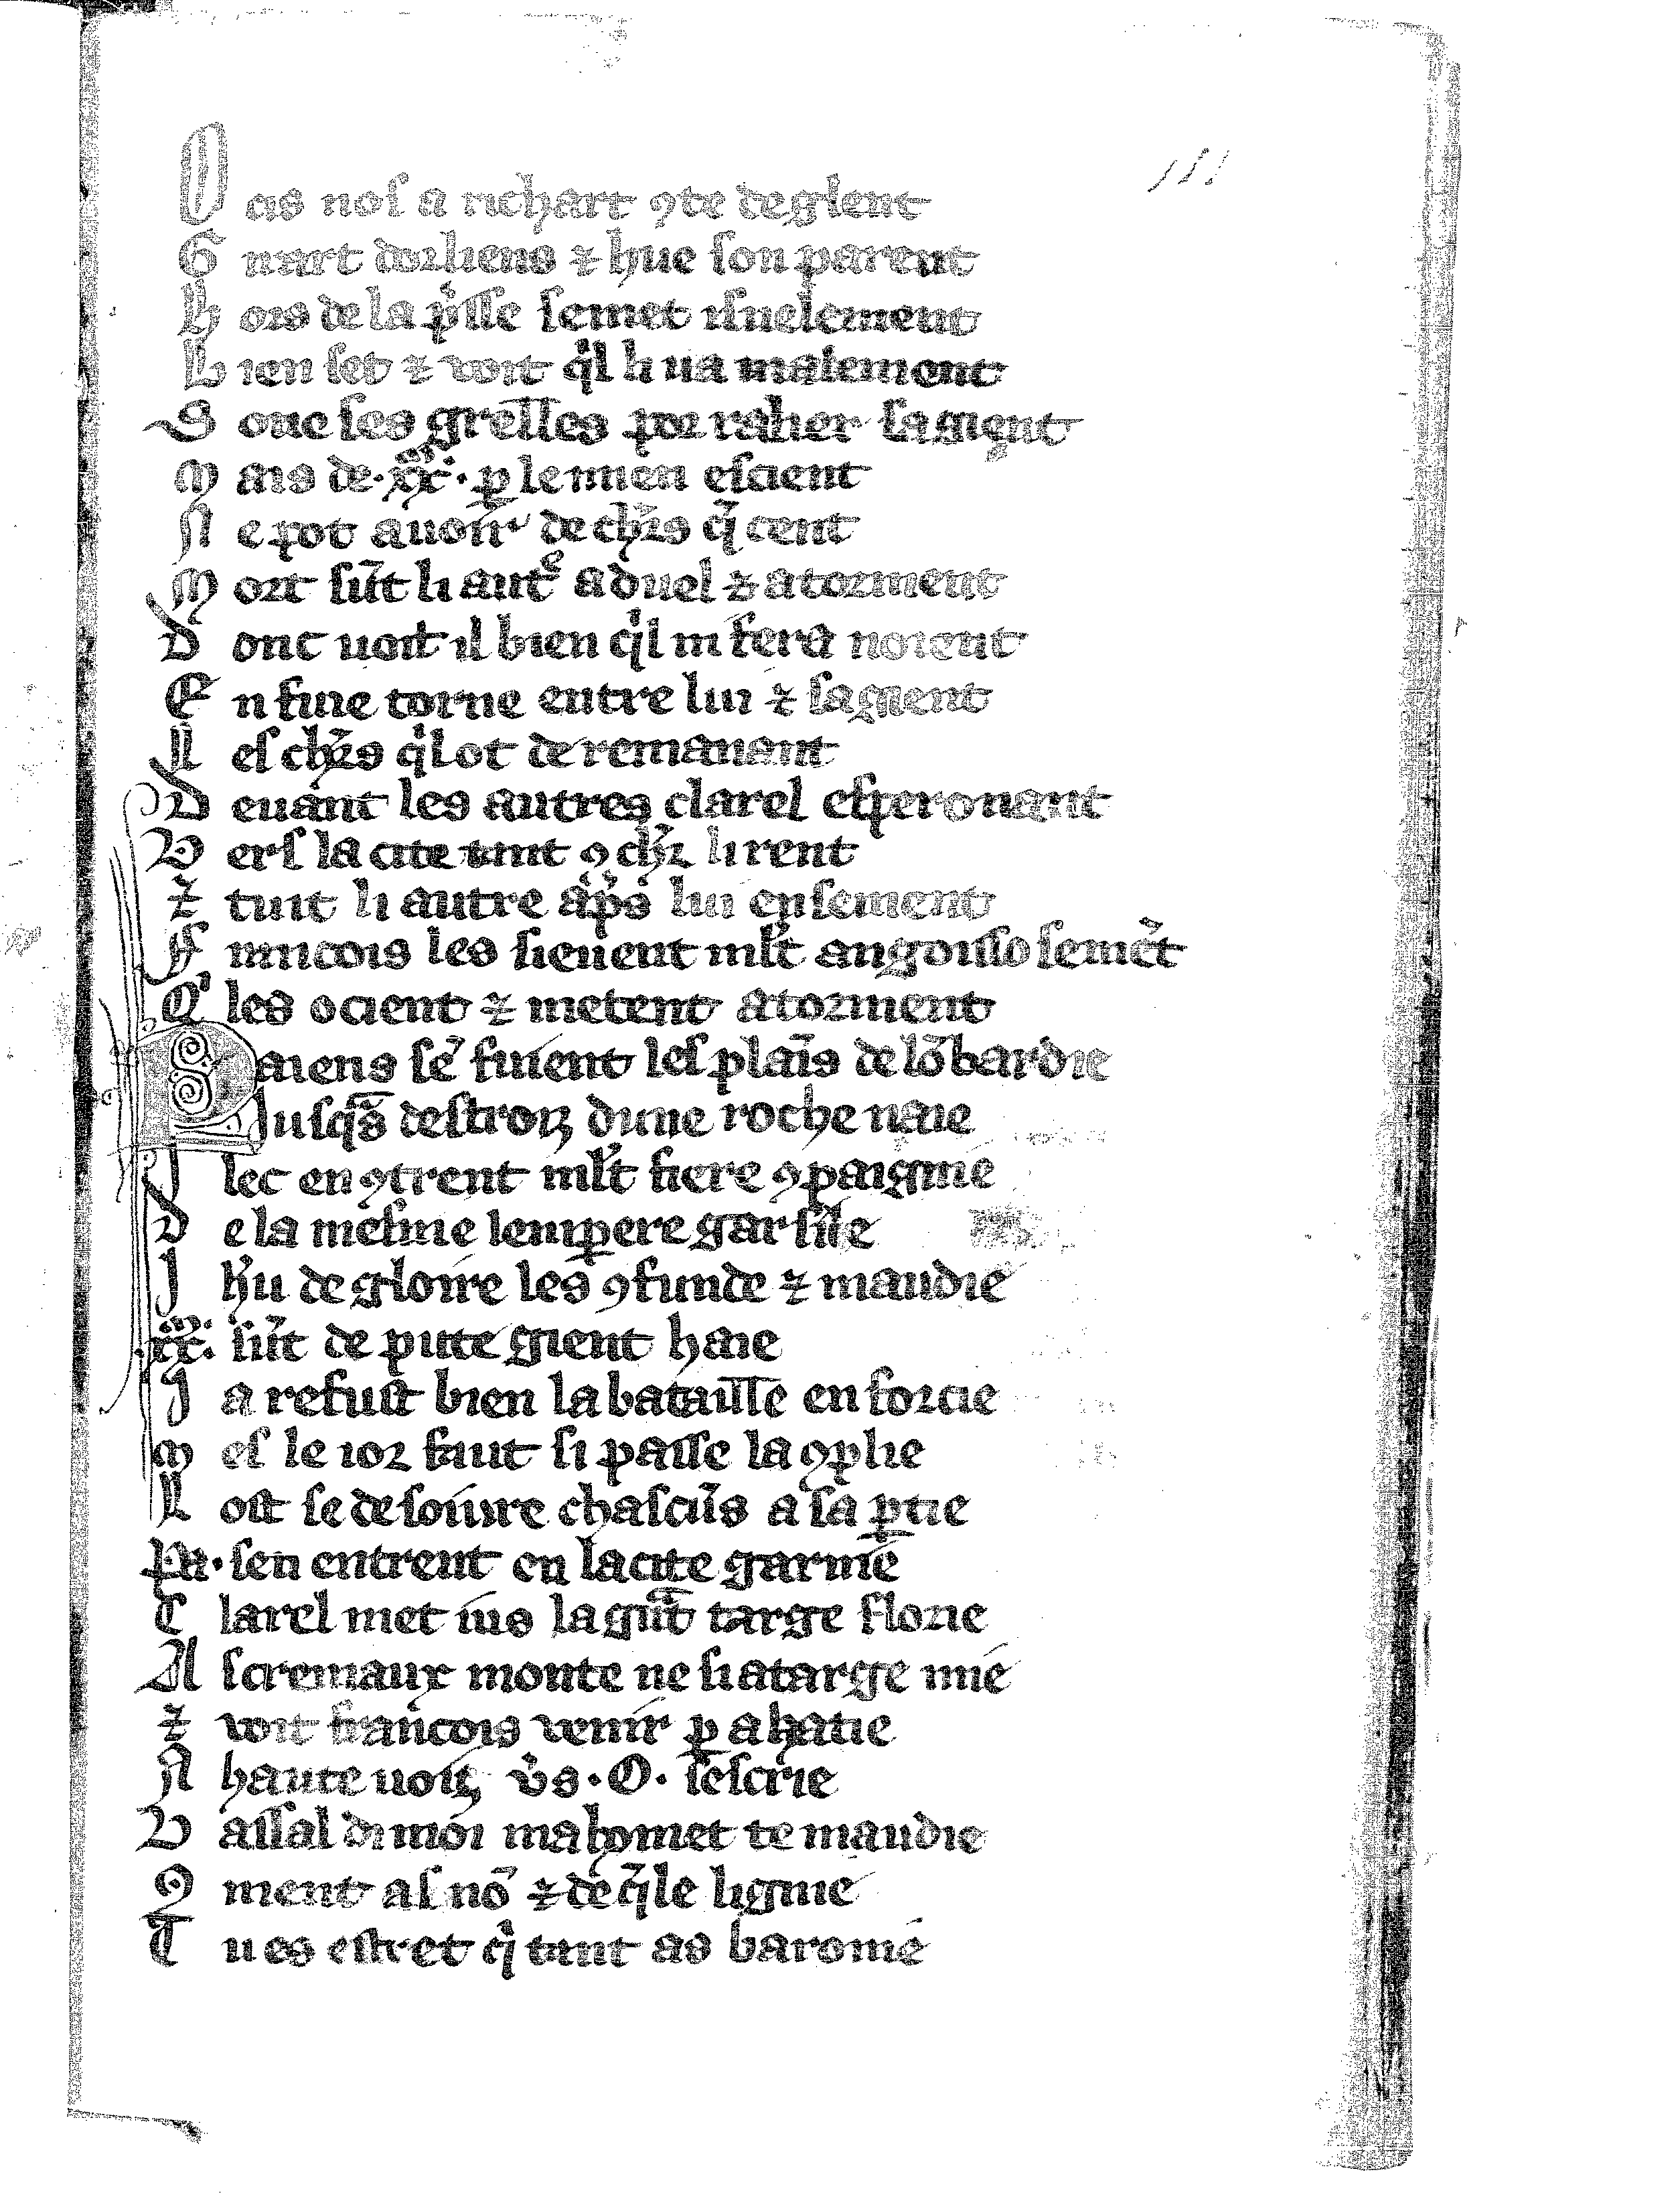 O cis nos a richart ꝯte de glent
G uart dorliens ⁊ hue son parent
H ors de la p̾sse se met isnelement
B ien set ⁊ voit qͥl li ua malement
S one ses grelles por ralier sa gient
M ais de .xx. ꝑ le mien escient
N e pot auoir de chr̾s q̃ cent
M ort sūt li autͤ a duel ⁊ a torment
D onc uoit il bien qͥl ni fera noient
E n fuie torne entre lui ⁊ sa gient
L es chr̾s qͥl ot de remanant
D euant les autres clarel esperonant
V ers la cite tint ꝯ chr̾ li rent
⁊ tuit li autre ap̾s lui ensement
F rancois les sieuent ml̾t angoissosemēt
Q' les ocient ⁊ metent a torment
Paiens sē fuient les plaīs de lōbardie
Iusqͣs destroiz dune roche naie
I lec enꝯtrent ml̾t fiere ꝯpaignie
D e la mesnie lempere garsile
I h̾u de gloire les ꝯfunde ⁊ maudie
.xx. sūt de pute gient haie
J a refust bien la bataille enforcie
M es le ior faut si passe la ꝯplie
L ost se desoiure chascūs a sa ꝑtie
Pa. sen entrent en la cite garnie
C larel met ius la gͣnt targe florie
A s cremaux monte ne si atarge mie
⁊ voit francois venir ꝑ ahatie
A haute uoiz v̾s .O. sescrie
V assal di moi mahomet te maudie
Ꝯ ment as nō ⁊ de q̃le lignie
T u es estret qͥ tant as baronie